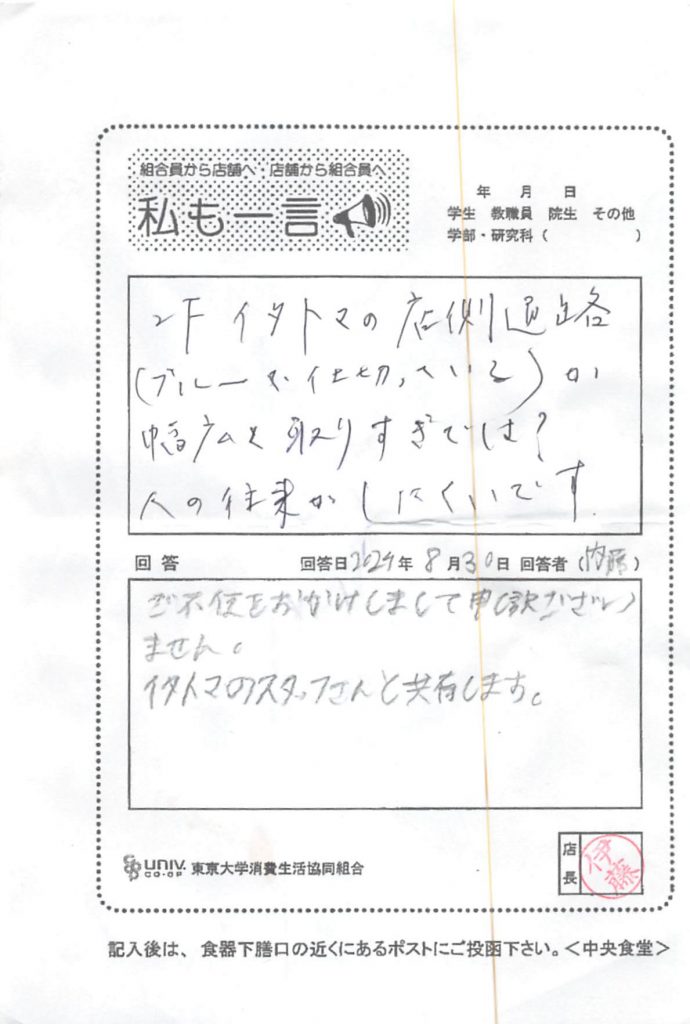 組合員から店舗へ・店舗から組合員へ
私も一言
年 月 日
学生 教職員 院生 その他
学部・研究科（ ）
2F イタトマの店側通路
(ブルーで仕切っている)が
幅広を取りすぎでは?
人の往来がしにくいです
回答 回答日2024年 8月30日 回答者（内藤）
ご不便をおかけしまして申し訳ござい
ません。
イタトマのスタッフさんと共有します。
UNIV. CO-OP 東京大学消費生活協同組合
店長 伊藤
記入後は、食器下膳口の近くにあるポストにご投函下さい。＜中央食堂＞